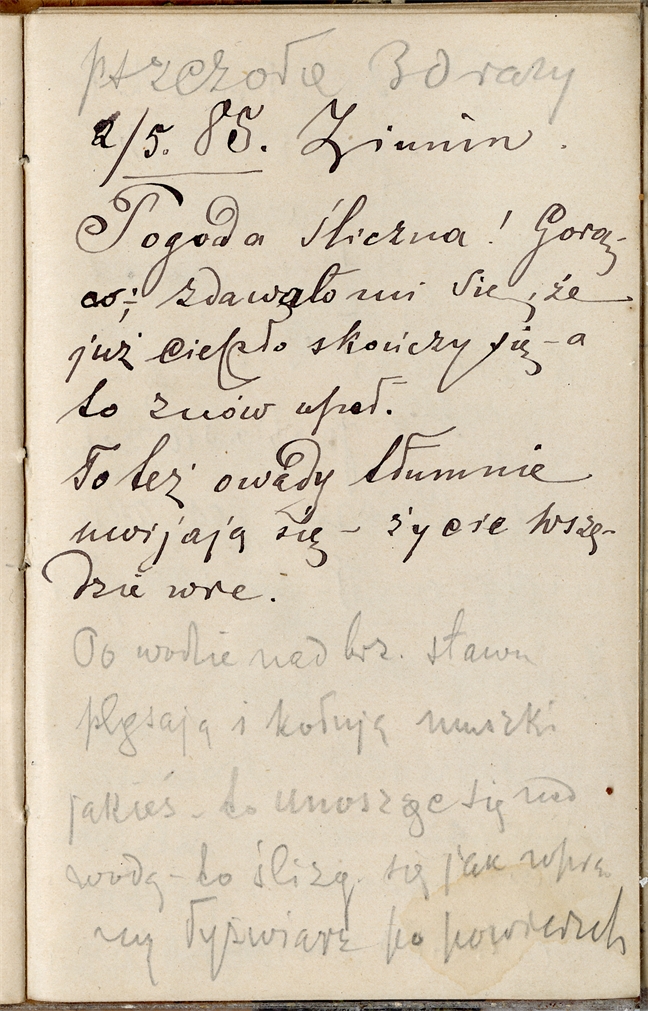 pszczołę 3 d razy
2/5. 85. Ziunin.
Pogoda śliczna! Gorą-
co; zdawało mi się, że
już ciepło skończy się – a
to znów upał.
To też owady tłumnie
uwijają się – życie wszę-
dzie wre.
Po wodzie nad brz. stawu
pływają i kołują muszki
jakieś – to unosząc się nad
wodą – to ślizg. się jak wpra
ny łyżwiarz po powierzch